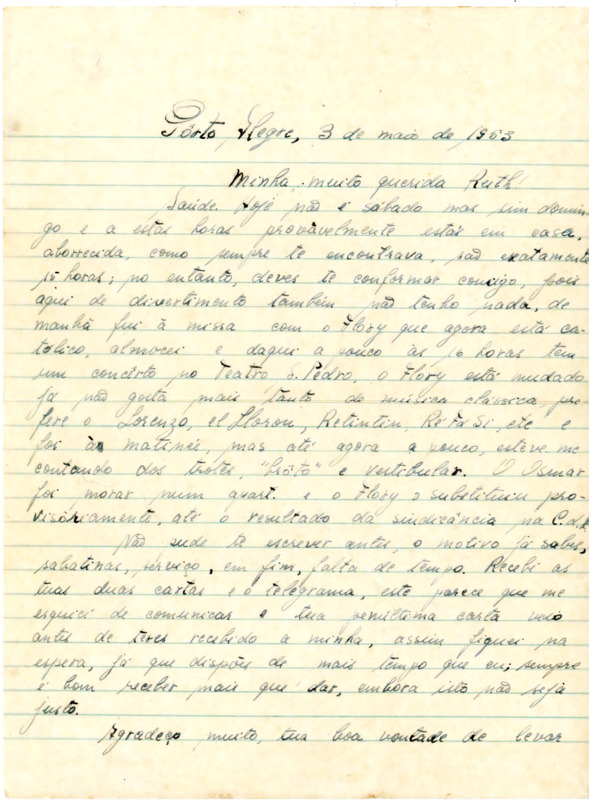 Pôrto Alegre, 3 de maio de 1953
Minha muito querida Ruth!
Saúde. Hoje não é sábado mas sim domin-
go e a estas horas provàvelmente estás em casa,
aborrecida, como sempre te encontrava, são exatamente
15 horas; no entanto, deves te conformar comigo, pois
aqui de divertimento também não tenho nada, de
manhã fui à missa com o Flory que agora está ca-
tólico, almocei e daqui a pouco às 16 horas tem
um concêrto no Teatro S. Pedro, o Flory está mudado
já não gosta mais tanto da música clássica, pre-
fere o Lorenzo, el Lloron, Retintin, etc e
foi às matinés, mas até agora a pouco, esteve me
contando dos trotes, e vestibular. O Osmar
foi morar num apart. e o Flory o substituiu pro-
visòriamente, até o resultado da sindicância na
Não pude te escrever antes, o motivo já sabes,
sabatinas, serviço, em fim, falta de tempo. Recebi as
tuas duas cartas e o telegrama, este parece que me
esquici de comunicar e tua penúltima carta veio
antes de teres recebido a minha, assim fiquei na
espera, já que dispões de mais tempo que eu; sempre
é bom receber mais que dar, embora isto não seja
justo.
Agradeço muito, tua boa vontade de levar